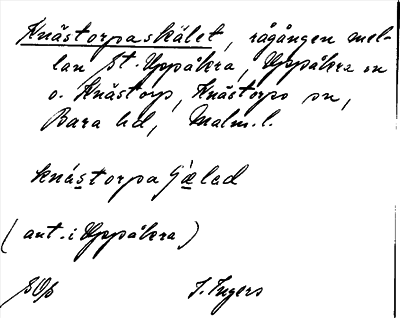 Knästorpaskälet, rågången mel-
lan St. Uppåkra, Uppåkra sn
o. Knästorp, Knästorps sn,
Bara hd, Malm. l.
knástorpa
(ant. i Uppåkra)
I. Ingers